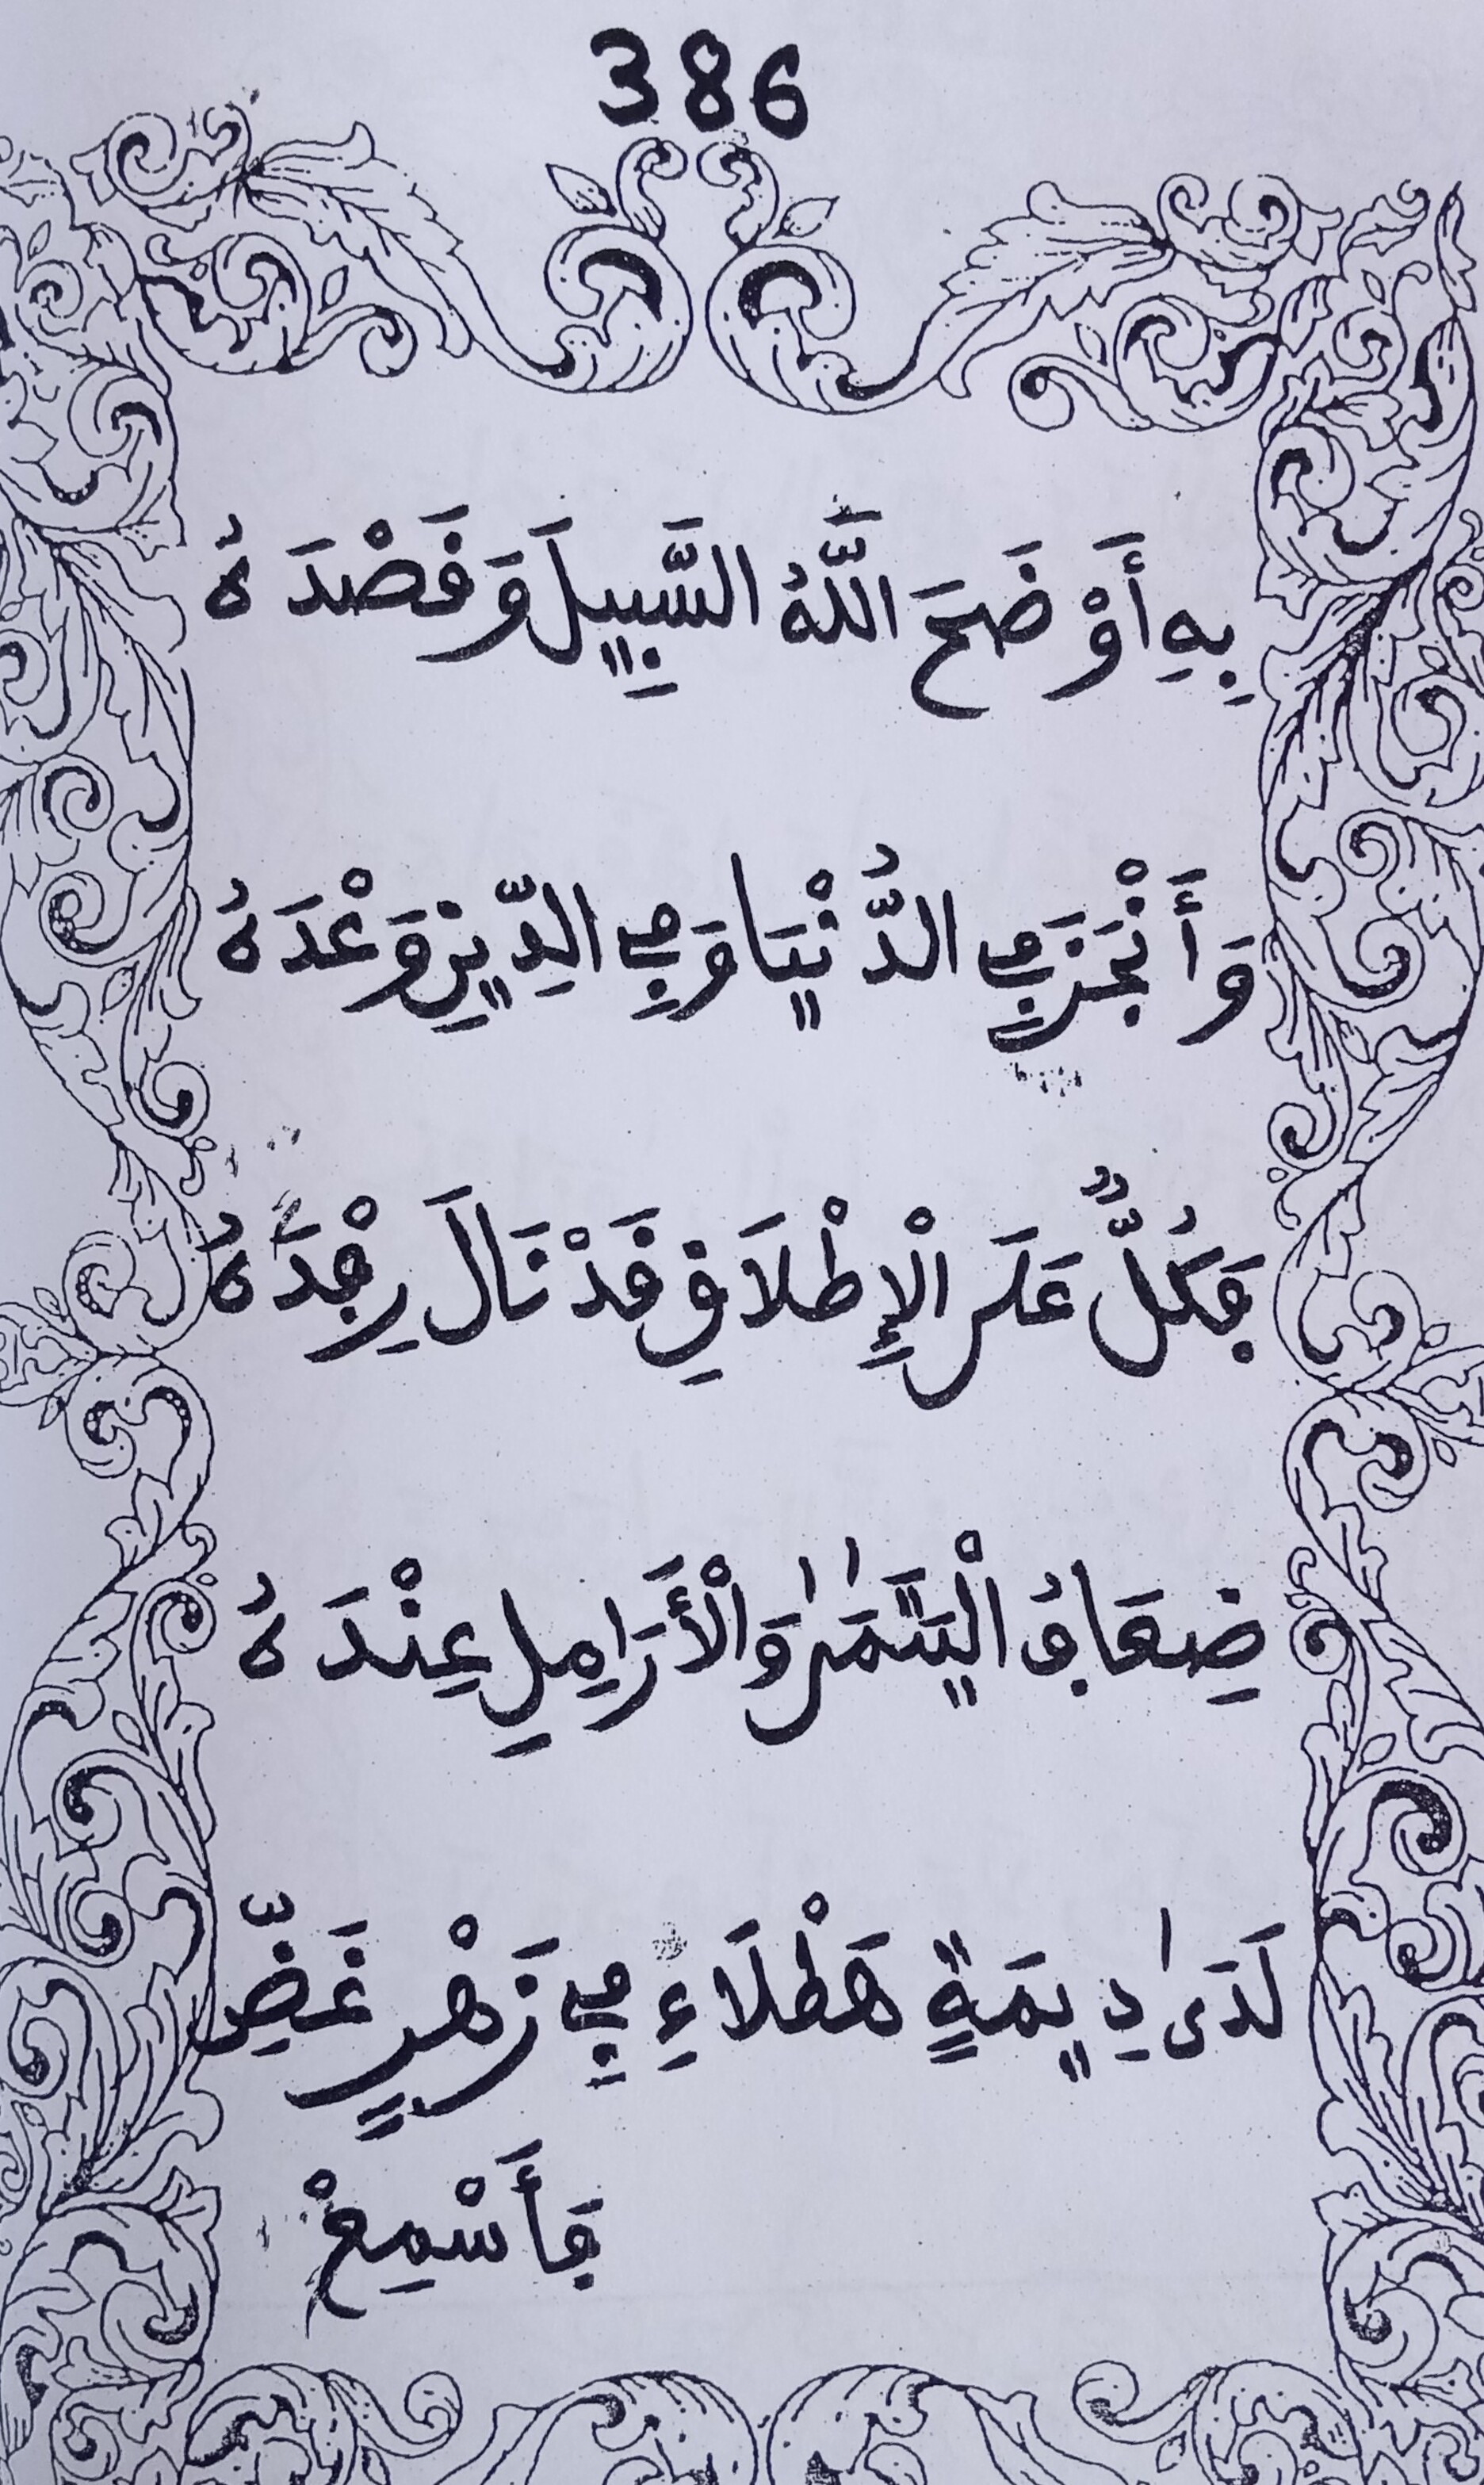 386
بِهِ أَوْضَحَ اللَّهُ السَّبِيلَ وَقَصْدَهُ
وَأَنْجَزَ فِي الدُّنْيَا وَفِي الدِّينِ وَعْدَهُ
فَكُلٌّ عَلَى الْإِطْلَاقِ قَدْ نَالَ رِفْدَهُ
ضِعَافُ الْيَتَٰمَىٰ وَالْأَرَامِلِ عِنْدَهُ
لَدَىٰ دِيمَةٍ هَطْلَاءِ فِي زَهْرٍ غَضِّ
فَأَسْمِعْ